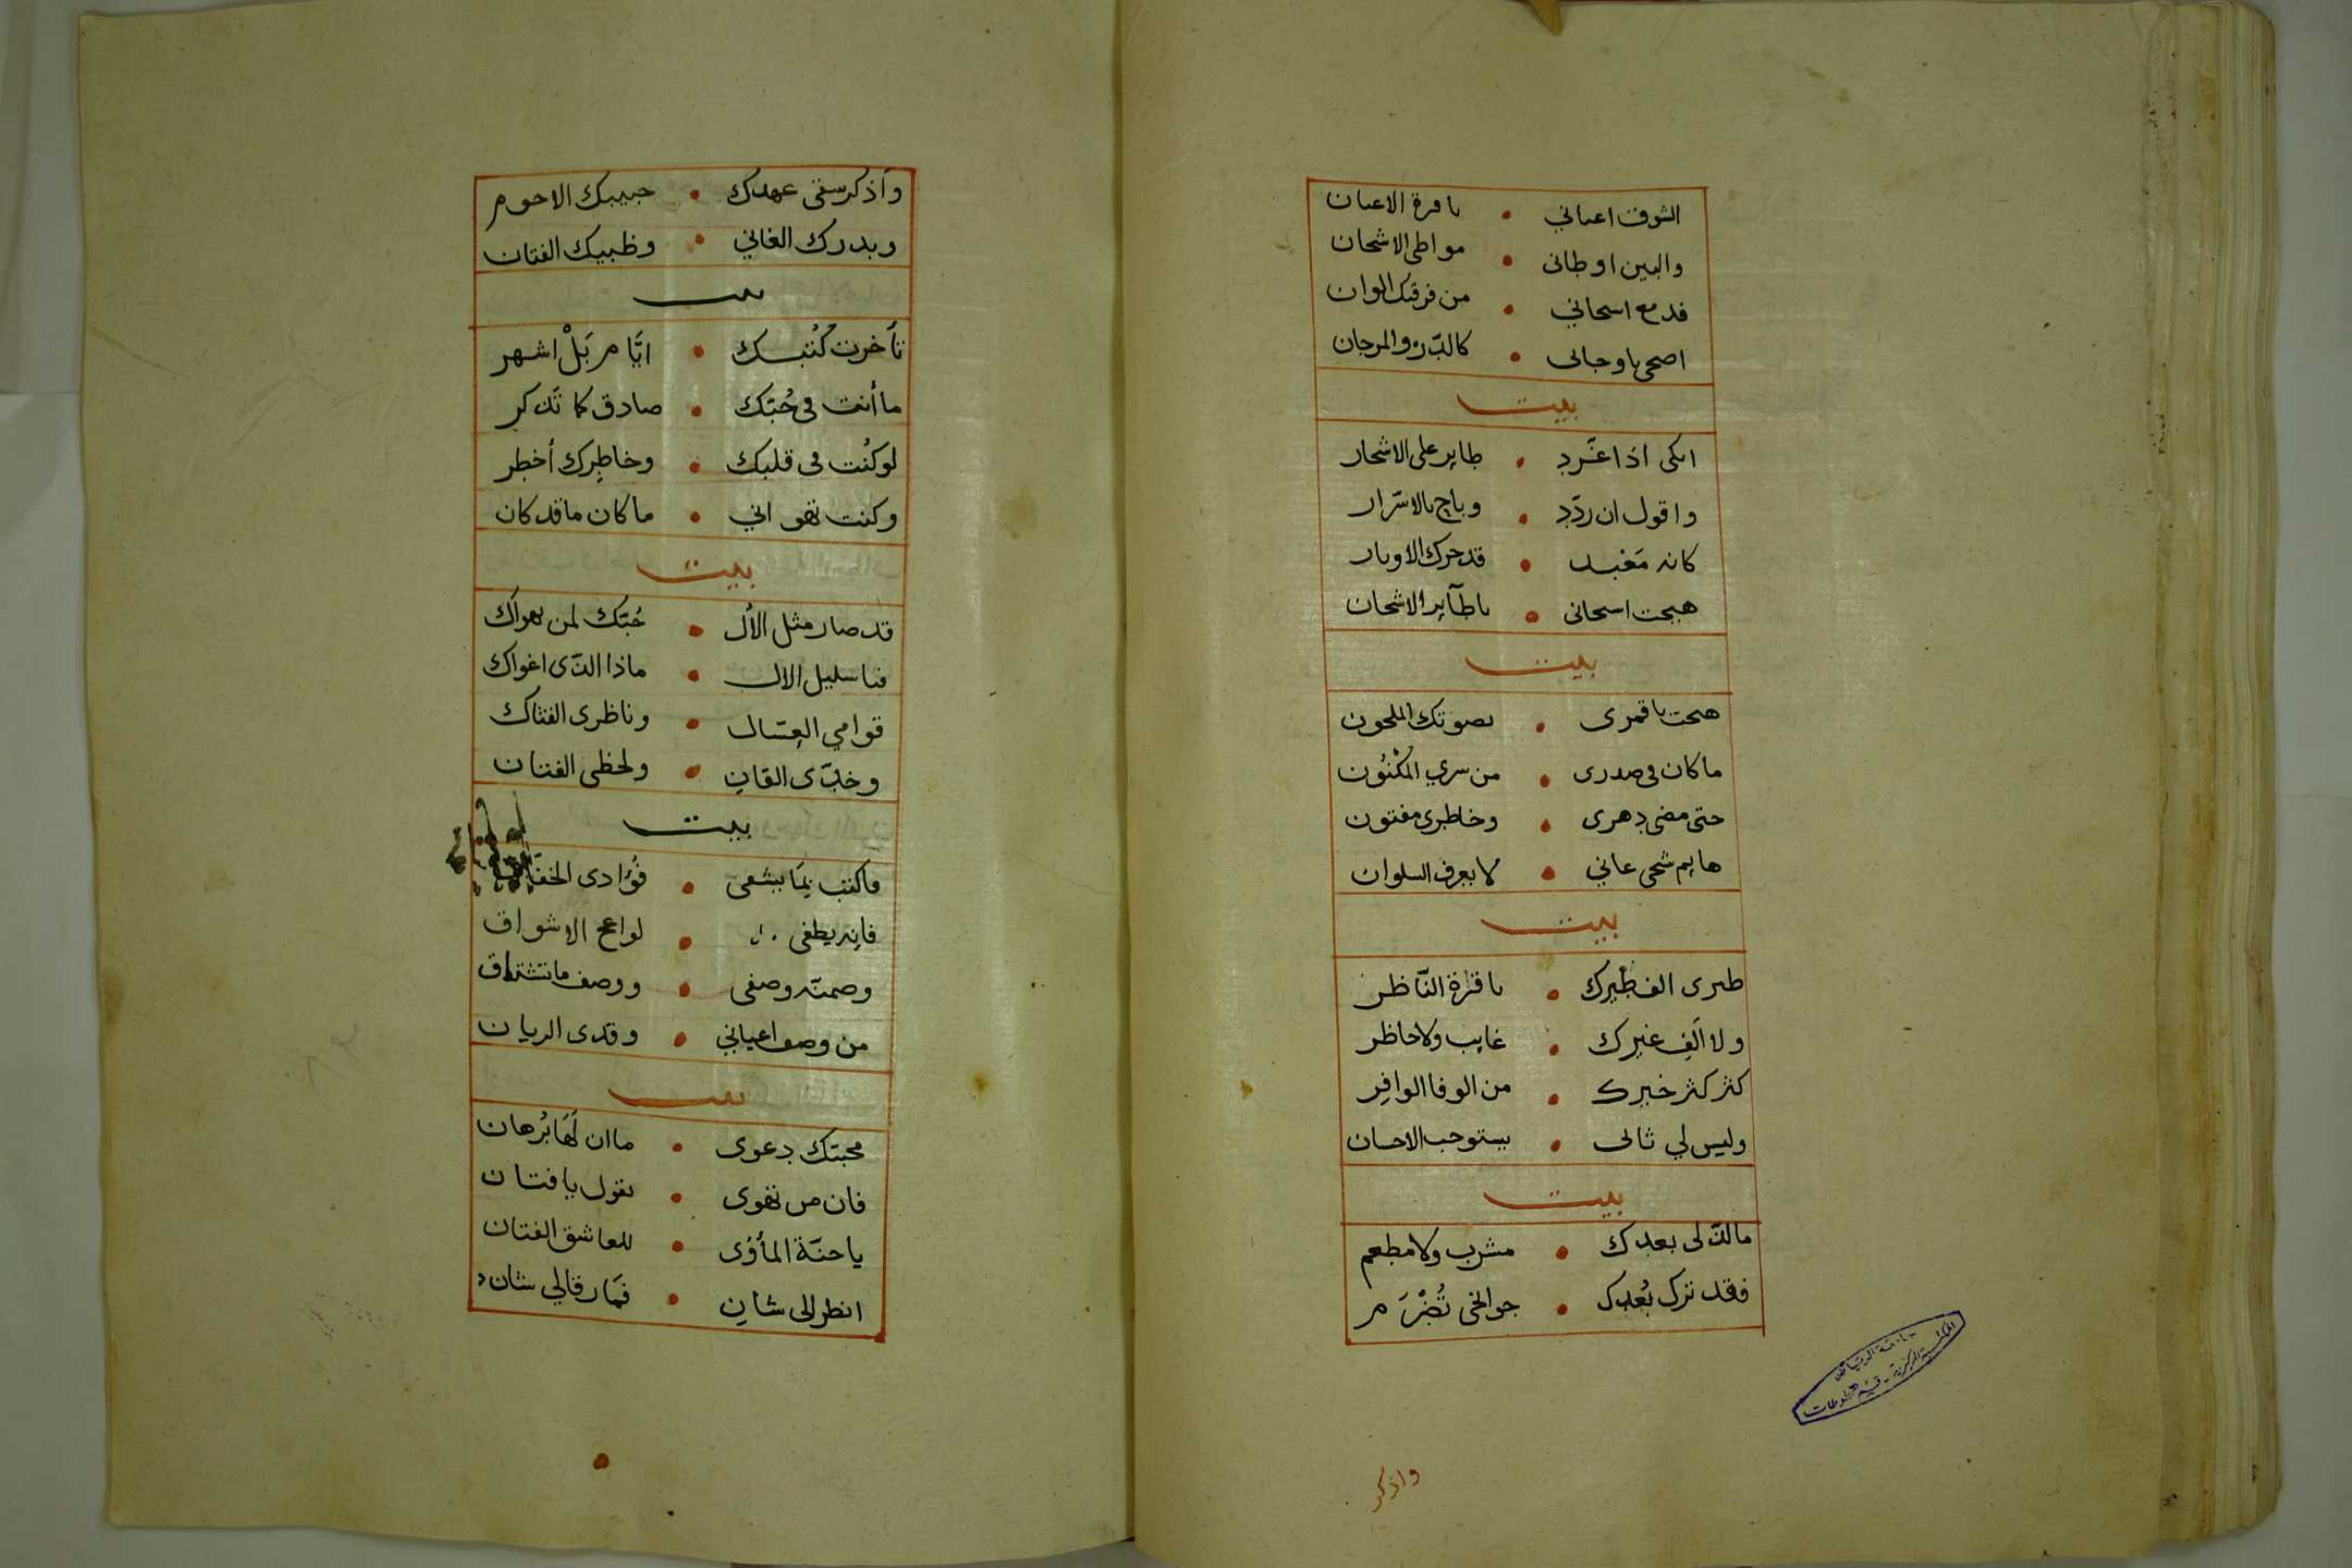 الشوق اعياني • يا قرة الاعيان
والبين اوطانى • مواطى الاشجان
فدمع اسجاني • من فرقتك الوان
اضحى ياوجانى • كالدّر والمرجان
بيت
ابكى اذا غرّد • طاير على الاشجار
واقول ان ردّد • وباح بالاسرار
كانه مَعْبد • قد حرك الاوتار
هيجت اسجانى • يا طآير الاشجان
بيت
هيجت يا قمرى • بصوتك الملحون
ما كان فى صدرى • من سري المكْنُون
حتى مضى دهرى • وخاطرى مفتون
هايم شجى عاني • لا يعرف السلوان
بيت
طيرى الف طيرك • يا قرة النّاظر
ولا اَلِف غيرك • غايب ولا حاظر
كثر كثر خيرك • من الوفا الوافِر
وليس لي ثانى • يستوجب الاحسان
بيت
مالذّ لى بعدك • مشرب ولا مطعم
فقد ترك بُعدك • جوانحى تُضْرَم
واذكر
واذكر سقى عهدك • حبيبك الاحوم
وبدرك الغاني • وظبيك الفتان
بيت
تأخرت كُتْبك • ايّام بَلْ اشهر
ما أنت فى حُبّك • صادق كما تَذكر
لو كُنْت فى قلبك • وخاطِرك أخطر
وكنت تهواني • ما كان ما قد كان
بيت
قد صار مثل الأل • حُبّك لمن يهواك
فيا سليل الال • ماذا الذّى اغواك
قوامي العسّال • وناظرى الفتاك
وخدّى القانِ • ولحظى الفتان
بيت
فاكتب بمَا يشفى • فُؤادى الخفاق
فانه يطفى • لواعج الاشواق
وضمنّه وصفى • ووصف ما تشتاق
من وصف اعياني • وقدى الريان
بيت
محبتك دعوى • ما ان لَهَا بُرهان
فان من تهوى • يقول يا فتان
يا جنّة المأوٰى • للعاشق الفتان
انظر الى شانِ • فمَا رقا لي شان